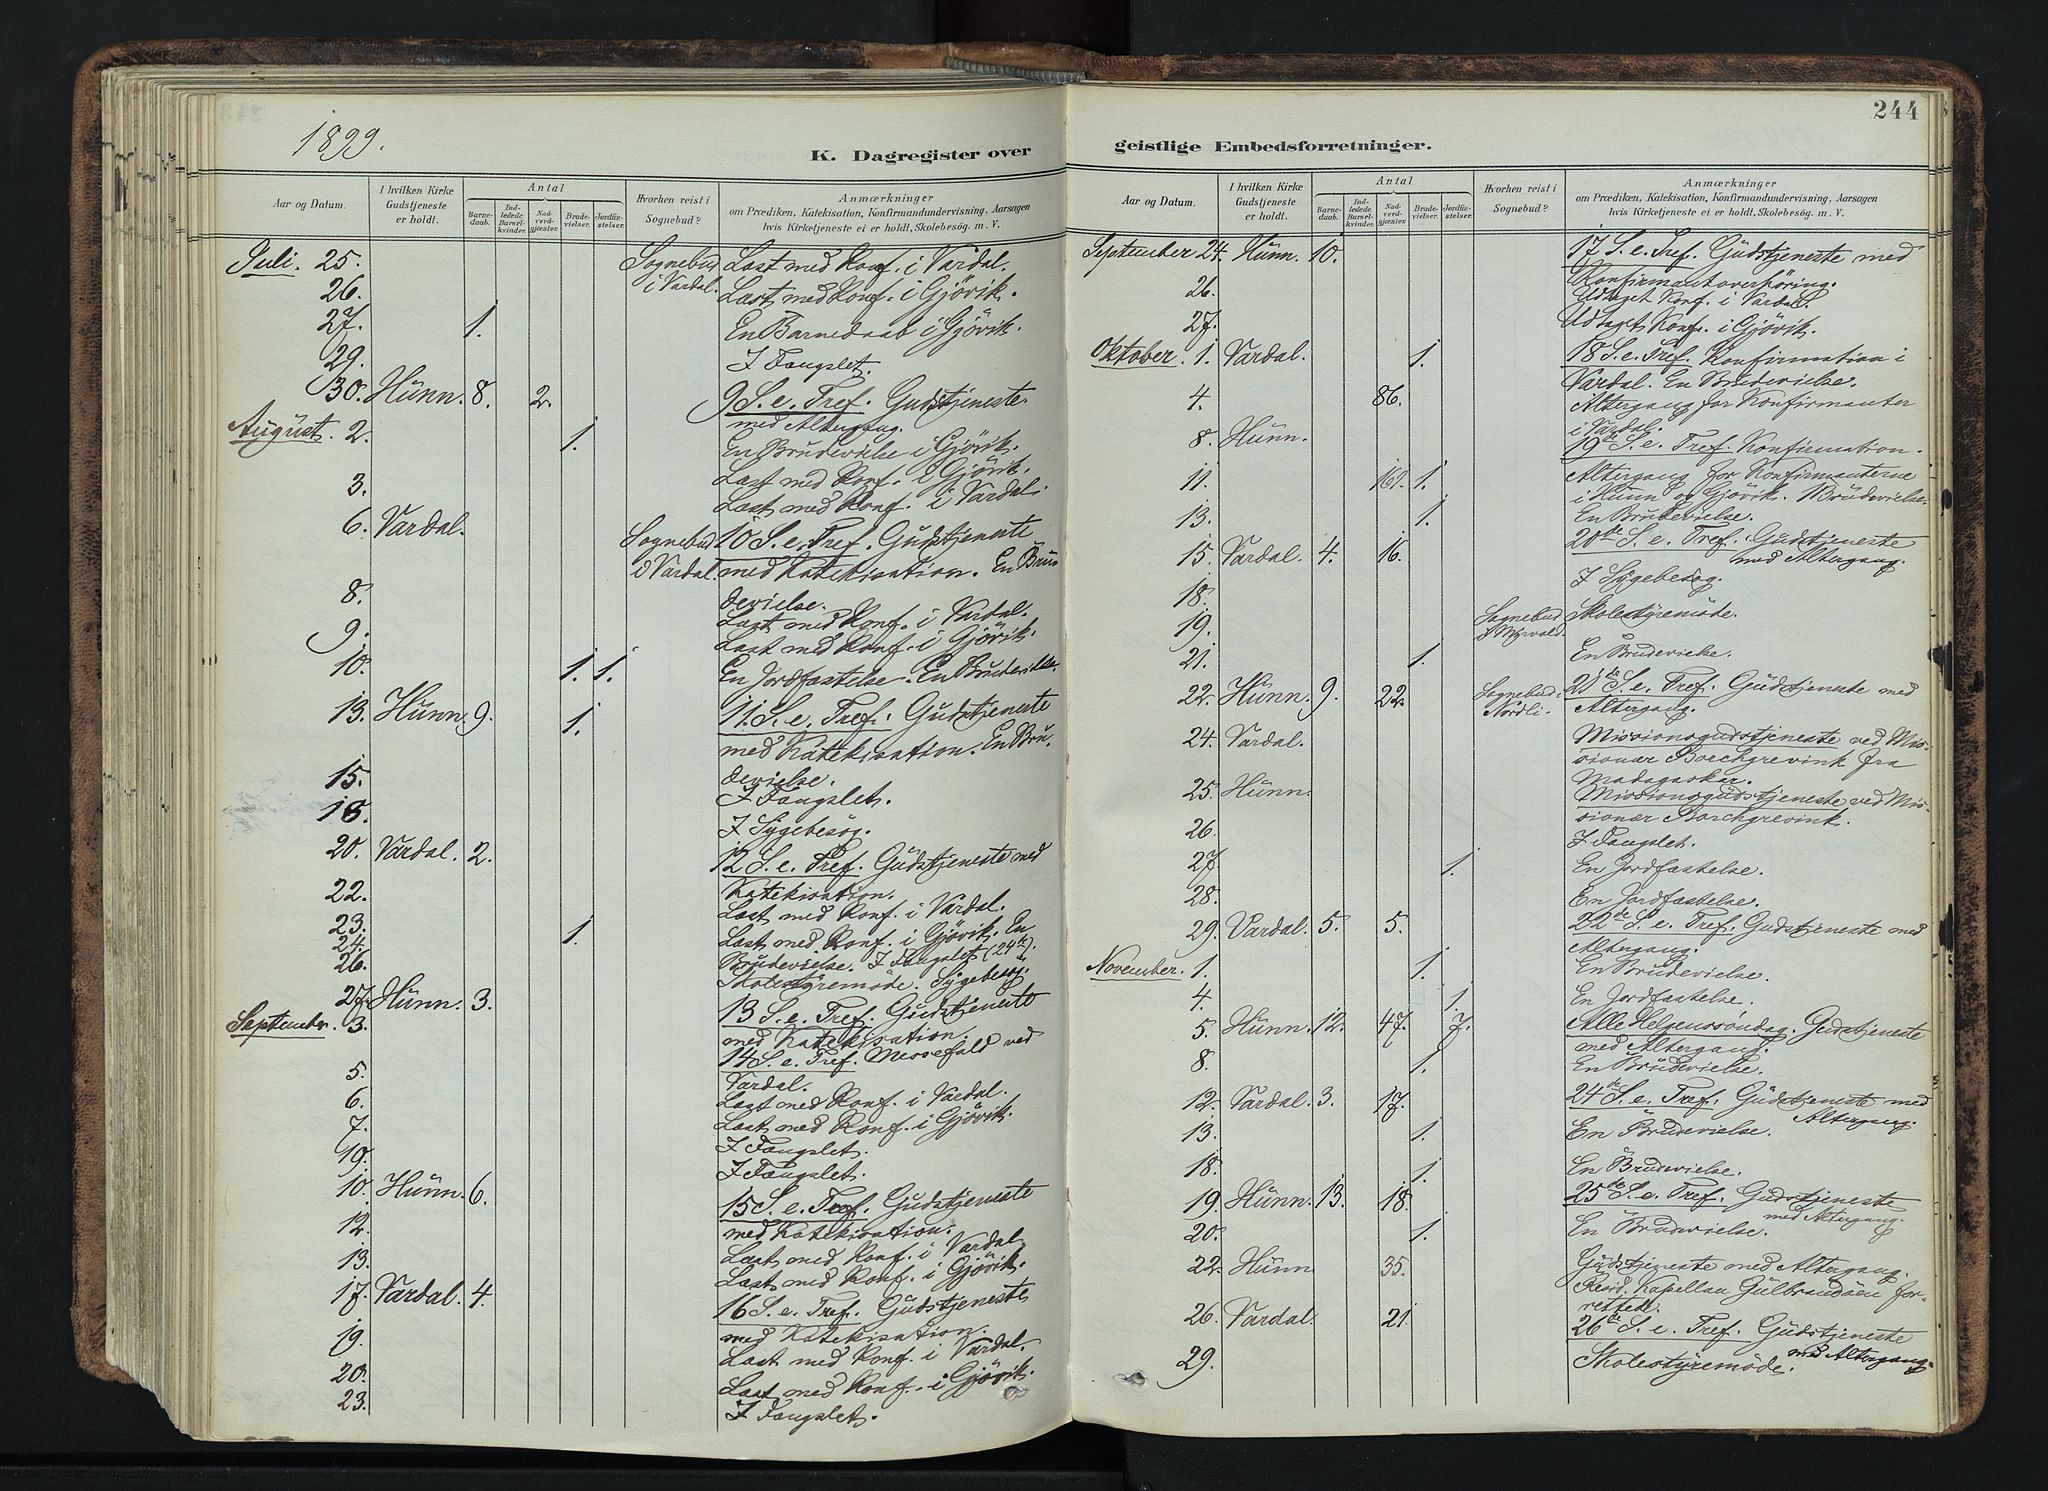 1899.
K. Dagregister over
Aar og Datum.
I hvilken Kirke Gudstjeneste er holdt.
Antal
Barne-daab.
Ind-ledede Barsel-kvinder.
Nad-verd-gjæster.
Brude-vielser.
Jordfæ-stelser.
Hvorhen reist i Sognebud?
Anmærkninger
om Prædiken, Katekisation, Konfirmandundervisning, Aarsagen
hvis Kirketjeneste ei er holdt, Skolebesøg. m. V.
Juli. 25. Sognebud i Vardal. Læst med Konf. i Vardal.
26. Læst med Konf. i Gjövik.
27. 1. En Barnedaab i Gjövik.
29. I Fængslet.
30. Hunn. 8. 2. 9 S. e. Tref. Gudstjeneste
med Altergang.
August. 2. 1. En Brudevielse i Gjövik.
Læst med Konf. i Gjövik.
3. Læst med Konf. i Vardal.
6. Vardal. Sognebud i Vardal. 10 S. e. Tref. Gudstjeneste
med Katekisation. En Bru
devielse.
8. Læst med Konf. i Vardal.
9. Læst med Konf. i Gjövik.
10. 1. 1. En Jordfæstelse. En Brudevielse.
13. Hunn. 9. 1. 11. S. e. Tref. Gudstjeneste
med Katekisation. En Bru.
devielse.
15. I Fængslet.
18. I Sygebesög.
20. Vardal. 2. 12 S. e. Tref. Gudstjeneste med
Katekisation.
22. Læst med Konf. i Vardal.
23. 1. Læst med Konf. i Gjövik. En
24. Brudevielse. I Fængslet (24de).
26. Skolestyremöde. Sygebesög.
27. Hunn. 3. 13 S. e. Tref. Gudstjeneste
med Katekisation.
September. 3. 14 S. e. Tref. Messefald ved
Vardal.
5. Læst med Konf. i Vardal.
6. Læst med Konf. i Gjövik.
7. I Fængslet.
10. I Fængslet.
10. Hunn. 6. 15 S. e. Tref. Gudstjeneste
med Katekisation.
12. Læst med Konf. i Vardal
13. Læst med Konf. i Gjövik.
17. Vardal. 4. 16 S. e. Tref. Gudstjeneste
med Katekisation.
19. Læst med Konf. i Vardal.
20. Læst med Konf. i Gjövik.
23. I Fængslet.
244
geistlige Embedsforretninger.
Aar og Datum.
I hvilken Kirke Gudstjeneste er holdt.
Antal
Barne-daab.
Ind-ledede Barsel-kvinder.
Nad-verd-gjæster.
Brude-vielser.
Jordfæ-stelser.
Hvorhen reist i Sognebud?
Anmærkninger
om Prædiken, Katekisation, Konfirmandundervisning, Aarsagen
hvis Kirketjeneste ei er holdt, Skolebesøg. m. V.
September 24. Hunn. 10. 17 S. e. Tref. Gudstjeneste med
Konfirmantoverhöring.
26. Udtaget Konf. i Vardal.
27. Udtaget Konf. i Gjövik.
Oktober. 1. Vardal. 1. 18 S. e. Tref. Konfirmation i
Vardal. En Brudevielse.
4. 86. Altergang for Konfirmanter
i Vardal.
8. Hunn. 19de S. e. Tref. Konfirmation.
11. 161. 1. Altergang for Konfirmanterne
i Hunn og Gjövik. Brudevielse.
13. 1. En Brudevielse.
15. Vardal. 4. 16. 20de S. e. Tref. Gudstjeneste
med Altergang.
18. I Sygebesög.
19. Sognebud Skolestyremöde.
21. 1. En Brudevielse.
22. Hunn. 9. 22. Sognebud i Nordli. 21de S. e. Tref. Gudstjeneste med
Altergang.
24. Vardal. Missionsgudstjeneste ved Mis-
sionær Borchgrevink fra
Madagaskar.
25. Hunn. Missionsgudstjeneste ved Mis-
sionær Borchgrevink.
26. I Fængslet.
27 1. En Jordfæstelse.
28. En Jordfæstelse.
29. Vardal. 5. 5. 22de S. e. Tref. Gudstjeneste med
Altergang.
November. 1. 1. En Brudevielse.
4. 1. En Jordfæstelse.
5. Hunn. 12. 47. 7. Alle Helgenssöndag. Gudstjeneste
med Altergang.
8. 1. En Brudevielse.
12. Vardal. 3. 17. 24de S. e. Tref. Gudstjeneste med
Altergang.
13. 1. En Brudevielse.
18. 1. En Brudevielse.
19. Hunn. 13. 18. 25de S. e. Tref. Gudstjeneste
med Altergang.
20. 1. En Brudevielse.
22. Hunn 35. Gudstjeneste med Altergang.
Resid. Kapellan Gulbrandsen for-
rettede.
26. Vardal. 21. 26de S. e. Tref. Gudstjeneste
med Altergang.
29. Skolestyremöde.